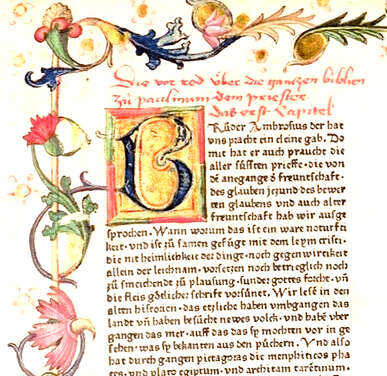 Die vor red über die gantzen biblien
zů paulinum dem priester
das erst Capitel
BRůder Ambrosius der hat
vns pracht ein cleine gab. Do
mit her auch praucht die
aller süssten prieffe. die von
dē anegange d̕ freuntschaft.
des glauben jezund des bewer
ten glaubens vnd auch alter
freuntschaft hab wir ausge
sprochen. Wann worum das ist ein ware notur f̄ti
keit. vnd ist zů samen gefügt mit dem leym cristi.
die nit heimlicheit der dinge. noch gegenwirtikeit
allein der leichnam. vorsetzen noch betrieglich noch
zů smeichende zů plausung. sunder gottes forchte. vn̄
die fleis götlicher schrifft vorsünet. Wir lesen in den
alten historien. das etzliche haben vmbgangen das
lande vn̄ haben besůcht newes volck. vnd habē v̈ber
gangen das mer. auff das das sy mochten vor in ge
sehen. was sy bekanten aus den půchern. Vnd also
hat durch gangen pictagoras die menphiticos pha
tes. vnd plato egiptum. vnd architam tarentinum.